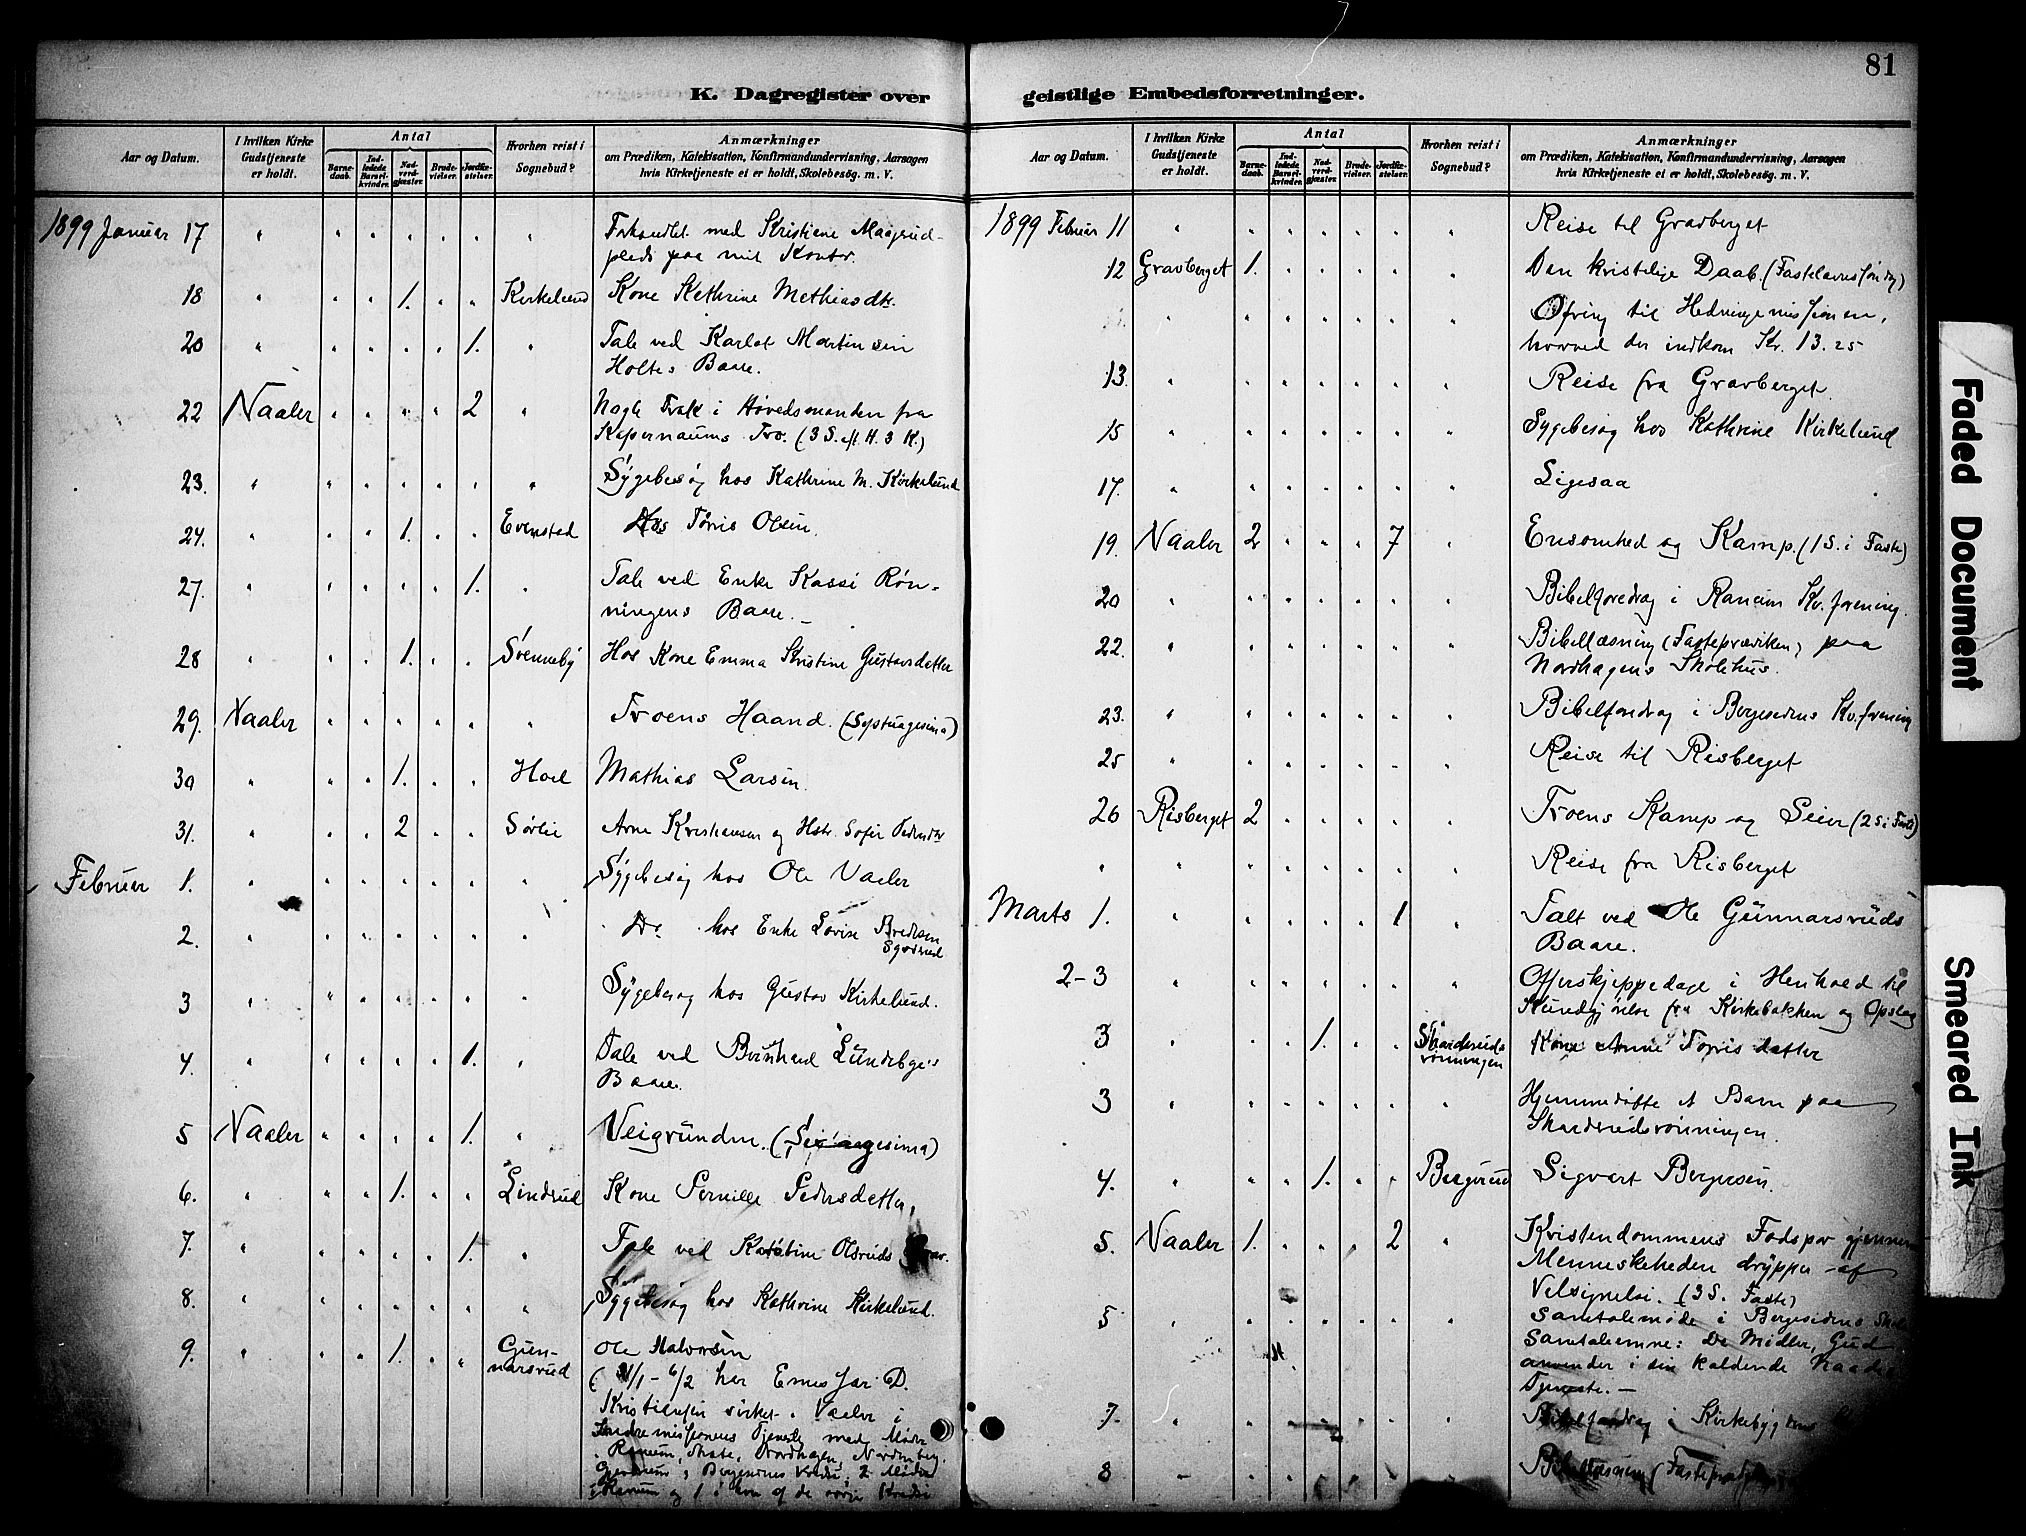 81
K. Dagregister over geistlige Embedsforretninger.
Aar og Datum. I hvilken Kirke Gudstjeneste er holdt. Antal Barnedaab. Indledede Barselkvinder. Nadverdgjæster. Brudevielser. Jordfæstelser. Hvorhen reist i Sognebud? Anmærkninger om Prædiken, Katekisation, Konfirmandundervisning, Aarsagen hvis Kirketjeneste ei er holdt, Skolebesøg. m. V.
1899 Januar 17 " " " " " " " med Kristiane
paa mit Kontor.
18 " " " 1. " " Kirkelund Kone Kathrine Mathiasdtr.
20 " " " " " 1. " Tale ved Karlot Martinsen
Holtes Baare.
22 Vaaler " " " " 2 " Nogle Træk i Høvedsmanden fra
Kapernaums Tro. (3 S. eft. H. 3 K.)
23. " " " " " " " Sygebesøg hos Kathrine M. Kirkelund
24. " " " 1. " " Evenstad Hos Tørris Olsen.
27. " " " " " 1. " Tale ved Enke Kassi Røn-
ningens Baare.
28 " " " 1. " " Svenneby Hos Kone Emma Kristine Gustavsdatter
29. Vaaler " " " " " " Troens Haand. (Septuagesima)
30 " " " 1. " " Hoel Mathias Larsen.
31. " " " 2 " " Sørlie Arne Kristiansen og Hstr. Sofie
Februar 1. " " " " " " " Sygebesøg hos Ole Vaaler
2. " " " " " " " Do hos Enke Lovise Bredesen
3 " " " " " " " Sygebesøg hos Gustav Kirkelund.
4. " " " " " 1. " Tale ved Bernhard Lundebye's
Baare.
5 Vaaler " " " " 1. " Veigrunden. (Sexagesima)
6. " " " 1. " " Lindrud Kone Pernille Pedersdatter,
7. " " " " " 1. " Tale ved Olsruds Grav.
8. " " " " " " " Sygebesøg hos Kathrine Kirkelund.
9. " " " 1. " " Gunnarsrud Ole Halvorsen
(31/1 – 6/2 har Emissær D.
Kristiansen virket i Vaaler i
Indremissionens Tjeneste med Møder
i Ranum, Nordhagen,
2 Møder
i Ranum og 1 i hver af de øvrige Kredse
Aar og Datum. I hvilken Kirke Gudstjeneste er holdt. Antal Barnedaab. Indledede Barselkvinder. Nadverdgjæster. Brudevielser. Jordfæstelser. Hvorhen reist i Sognebud? Anmærkninger om Prædiken, Katekisation, Konfirmandundervisning, Aarsagen hvis Kirketjeneste ei er holdt, Skolebesøg. m. V.
1899 Februar 11 " " " " " " " Reise til Gravberget
12 Gravberget 1. " " " " " Den kristelige Daab. (Fastelavnssøndag)
" " " " " " " Ofring til Hedningemissionen,
hvorved der indkom Kr. 13.25
13. " " " " " " " Reise fra Gravberget.
15 " " " " " " " Sygebesøg hos Kathrine Kirkelund
17. " " " " " " " Ligesaa
19. Vaaler 2 " " " 7 " Ensomhed og Kamp. (1 S. i Faste)
20 " " " " " " " Bibelforedrag i Ranum Kv.forening.
22. " " " " " " " Bibellæsning (Fasteprædiken) paa
Nordhagens Skolehus.
23. " " " " " " " Bibelforedrag i Bergesidens Kv.forening
25 " " " " " " " Reise til Risberget
26 Risberget 2 " " " " " Troens Kamp og Seier (2 S i Faste)
" " " " " " " " Reise fra Risberget
Marts 1. " " " " " 1 " Talt ved Ole Gunnarsruds
Baare.
2–3 " " " " " " " Offerskjeppedage i Henhold til
Kundgjørelse fra Kirkebakken og Opslag
3 " " " 1. " " Skarderudsrønningen Kone Anne Torrisdatter
3 " " " " " " " Hjemmedøbte et Barn paa
Skarderudsrønningen.
4. " " " 1. " " Bergerud Sigvart Bergersen.
5. Vaaler 1. " " " 2 " Kristendommens Fodspor gjennem
Menneskeheden drypper af
Velsignelse. (3 S. Faste)
5 " " " " " " " Samtalemøde i Bergesidens
Samtaleemne: De Midler, Gud
anvender i sin kaldende Naades
Tjeneste. –
7. " " " " " " " Bibelforedrag i Kirkeby
8 " " " " " " " Bibellæsning
Faded Document
Smeared Ink